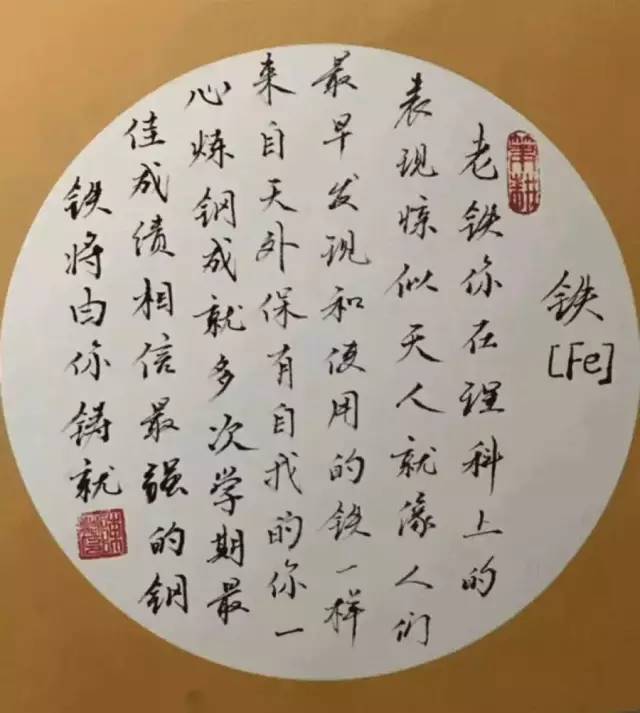 铁
[Fe]
老铁你在理科上的
表现惊似天人就像人们
最早发现和使用的铁一样
来自天外保有自我的你一
心炼钢成就多次学期最
佳成绩相信最强的钢
铁将由你铸就
笔耕